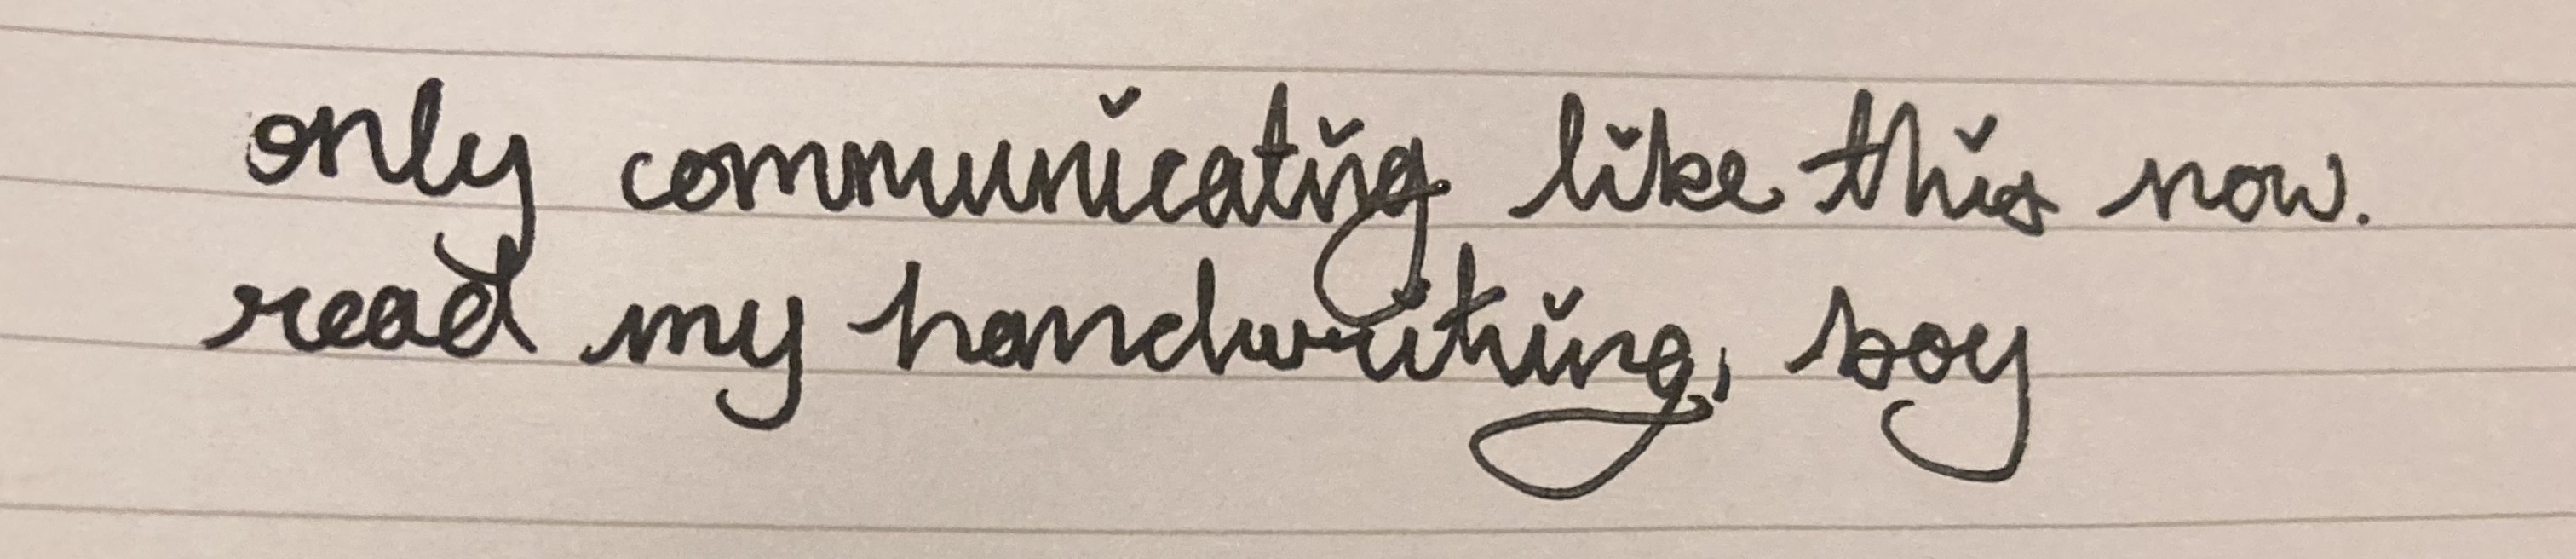 only communicating like this now.
read my handwriting, boy